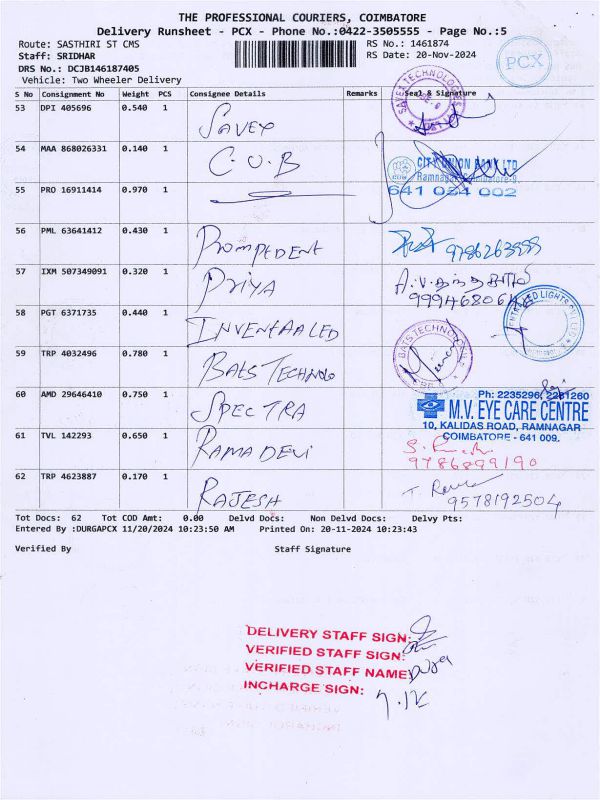 THE PROFESSIONAL COURIERS, COIMBATORE
Delivery Runsheet - PCX - Phone No.:0422-3505555 - Page No.:5
Route: SASTHIRI ST CMS
RS No.: 1461874
Staff: SRIDHAR
RS Date: 20-Nov-2024
DRS No.: DCJB146187405
Vehicle: Two Wheeler Delivery
PCX
S No Consignment No Weight PCS Consignee Details Remarks Seal & Signature
53 DPI 405696 0.540 1 SAVEX
54 MAA 868026331 0.140 1 C.U.B
CITY UNION BANK LTD
Ramnagar Coimbatore-9
641 054 002
55 PRO 16911414 0.970 1
56 PML 63641412 0.430 1 PROMPEDENT
57 IXM 507349091 0.320 1 PRIYA
58 PGT 6371735 0.440 1 INVENTAA LED
59 TRP 4032496 0.780 1 BATS TECHNOLO
BATS TECHNOLOGIES
60 AMD 29646410 0.750 1 SPECTRA
Ph: 2235296, 2231260
M.V. EYE CARE CENTRE
10, KALIDAS ROAD, RAMNAGAR
COIMBATORE - 641 009.
61 TVL 142293 0.650 1 RAMADEVI
9786899190
62 TRP 4623887 0.170 1 RAJESH
9578192504
Tot Docs: 62 Tot COD Amt: 0.00 Delvd Docs: Non Delvd Docs: Delvy Pts:
Entered By :DURGAPCX 11/20/2024 10:23:50 AM Printed On: 20-11-2024 10:23:43
Verified By Staff Signature
DELIVERY STAFF SIGN:
VERIFIED STAFF SIGN:
VERIFIED STAFF NAME:
INCHARGE SIGN: